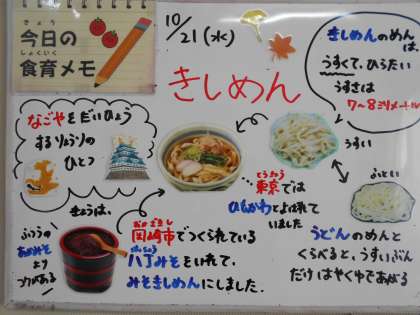 きょう
今日の
しょくいく
食育メモ
10/21(水)
きしめん
きしめんのめんは、
うすくて、ひらたい
うすさは
7〜8ミリメートル
なごやをだいひょう
するりょうりの
ひとつ
うすい
とうきょう
東京では
ひもかわとよばれて
いました
ふとい
きょうは、
ふつうの
あかみそ
より
コクがある
おかざきし
岡崎市でつくられている
はっちょう
八丁みそをいれて、
みそきしめんにしました。
うどんのめんと
くらべると、うすいぶん
だけはやくゆであがる